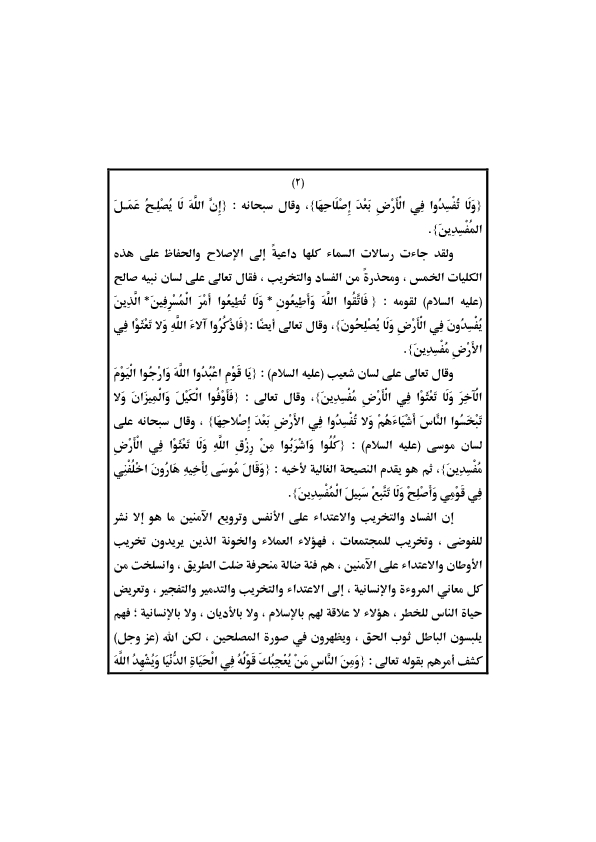 (٢)
{وَلَا تُفْسِدُوا فِي الْأَرْضِ بَعْدَ إِصْلَاحِهَا}، وقال سبحانه : {إِنَّ اللَّهَ لَا يُصْلِحُ عَمَـلَ
المُفْسِدِينَ}.
ولقد جاءت رسالات السماء كلها داعيةً إلى الإصلاح والحفاظ على هذه
الكليات الخمس ، ومحذرةً من الفساد والتخريب ، فقال تعالى على لسان نبيه صالح
(عليه السلام) لقومه : { فَاتَّقُوا اللَّهَ وَأَطِيعُونِ * وَلَا تُطِيعُوا أَمْرَ الْمُسْرِفِينَ* الَّذِينَ
يُفْسِدُونَ فِي الْأَرْضِ وَلَا يُصْلِحُونَ}، وقال تعالى أيضًا :{فَاذْكُرُوا آلاءَ اللَّهِ وَلا تَعْثَوْا فِي
الأَرْضِ مُفْسِدِينَ}.
وقال تعالى على لسان شعيب (عليه السلام) : {يَا قَوْمِ اعْبُدُوا اللَّهَ وَارْجُوا الْيَوْمَ
الْآخِرَ وَلَا تَعْثَوْا فِي الْأَرْضِ مُفْسِدِينَ}، وقال تعالى : {فَأَوْفُوا الْكَيْلَ وَالْمِيزَانَ وَلا
تَبْخَسُوا النَّاسَ أَشْيَاءَهُمْ وَلا تُفْسِدُوا فِي الأَرْضِ بَعْدَ إِصْلاحِهَا} ، وقال سبحانه على
لسان موسى (عليه السلام) : {كُلُوا وَاشْرَبُوا مِنْ رِزْقِ اللَّهِ وَلَا تَعْثَوْا فِي الْأَرْضِ
مُفْسِدِينَ}، ثم هو يقدم النصيحة الغالية لأخيه : {وَقَالَ مُوسَى لِأَخِيهِ هَارُونَ اخْلُفْنِي
فِي قَوْمِي وَأَصْلِحْ وَلَا تَتَّبِعْ سَبِيلَ الْمُفْسِدِينَ}.
إن الفساد والتخريب والاعتداء على الأنفس وترويع الآمنين ما هو إلا نشر
للفوضى ، وتخريب للمجتمعات ، فهؤلاء العملاء والخونة الذين يريدون تخريب
الأوطان والاعتداء على الآمنين ، هم فئة ضالة منحرفة ضلت الطريق ، وانسلخت من
كل معاني المروءة والإنسانية ، إلى الاعتداء والتخريب والتدمير والتفجير ، وتعريض
حياة الناس للخطر ، هؤلاء لا علاقة لهم بالإسلام ، ولا بالأديان ، ولا بالإنسانية ؛ فهم
يلبسون الباطل ثوب الحق ، ويظهرون في صورة المصلحين ، لكن الله (عز وجل)
كشف أمرهم بقوله تعالى : {وَمِنَ النَّاسِ مَنْ يُعْجِبُكَ قَوْلُهُ فِي الْحَيَاةِ الدُّنْيَا وَيُشْهِدُ اللَّهَ